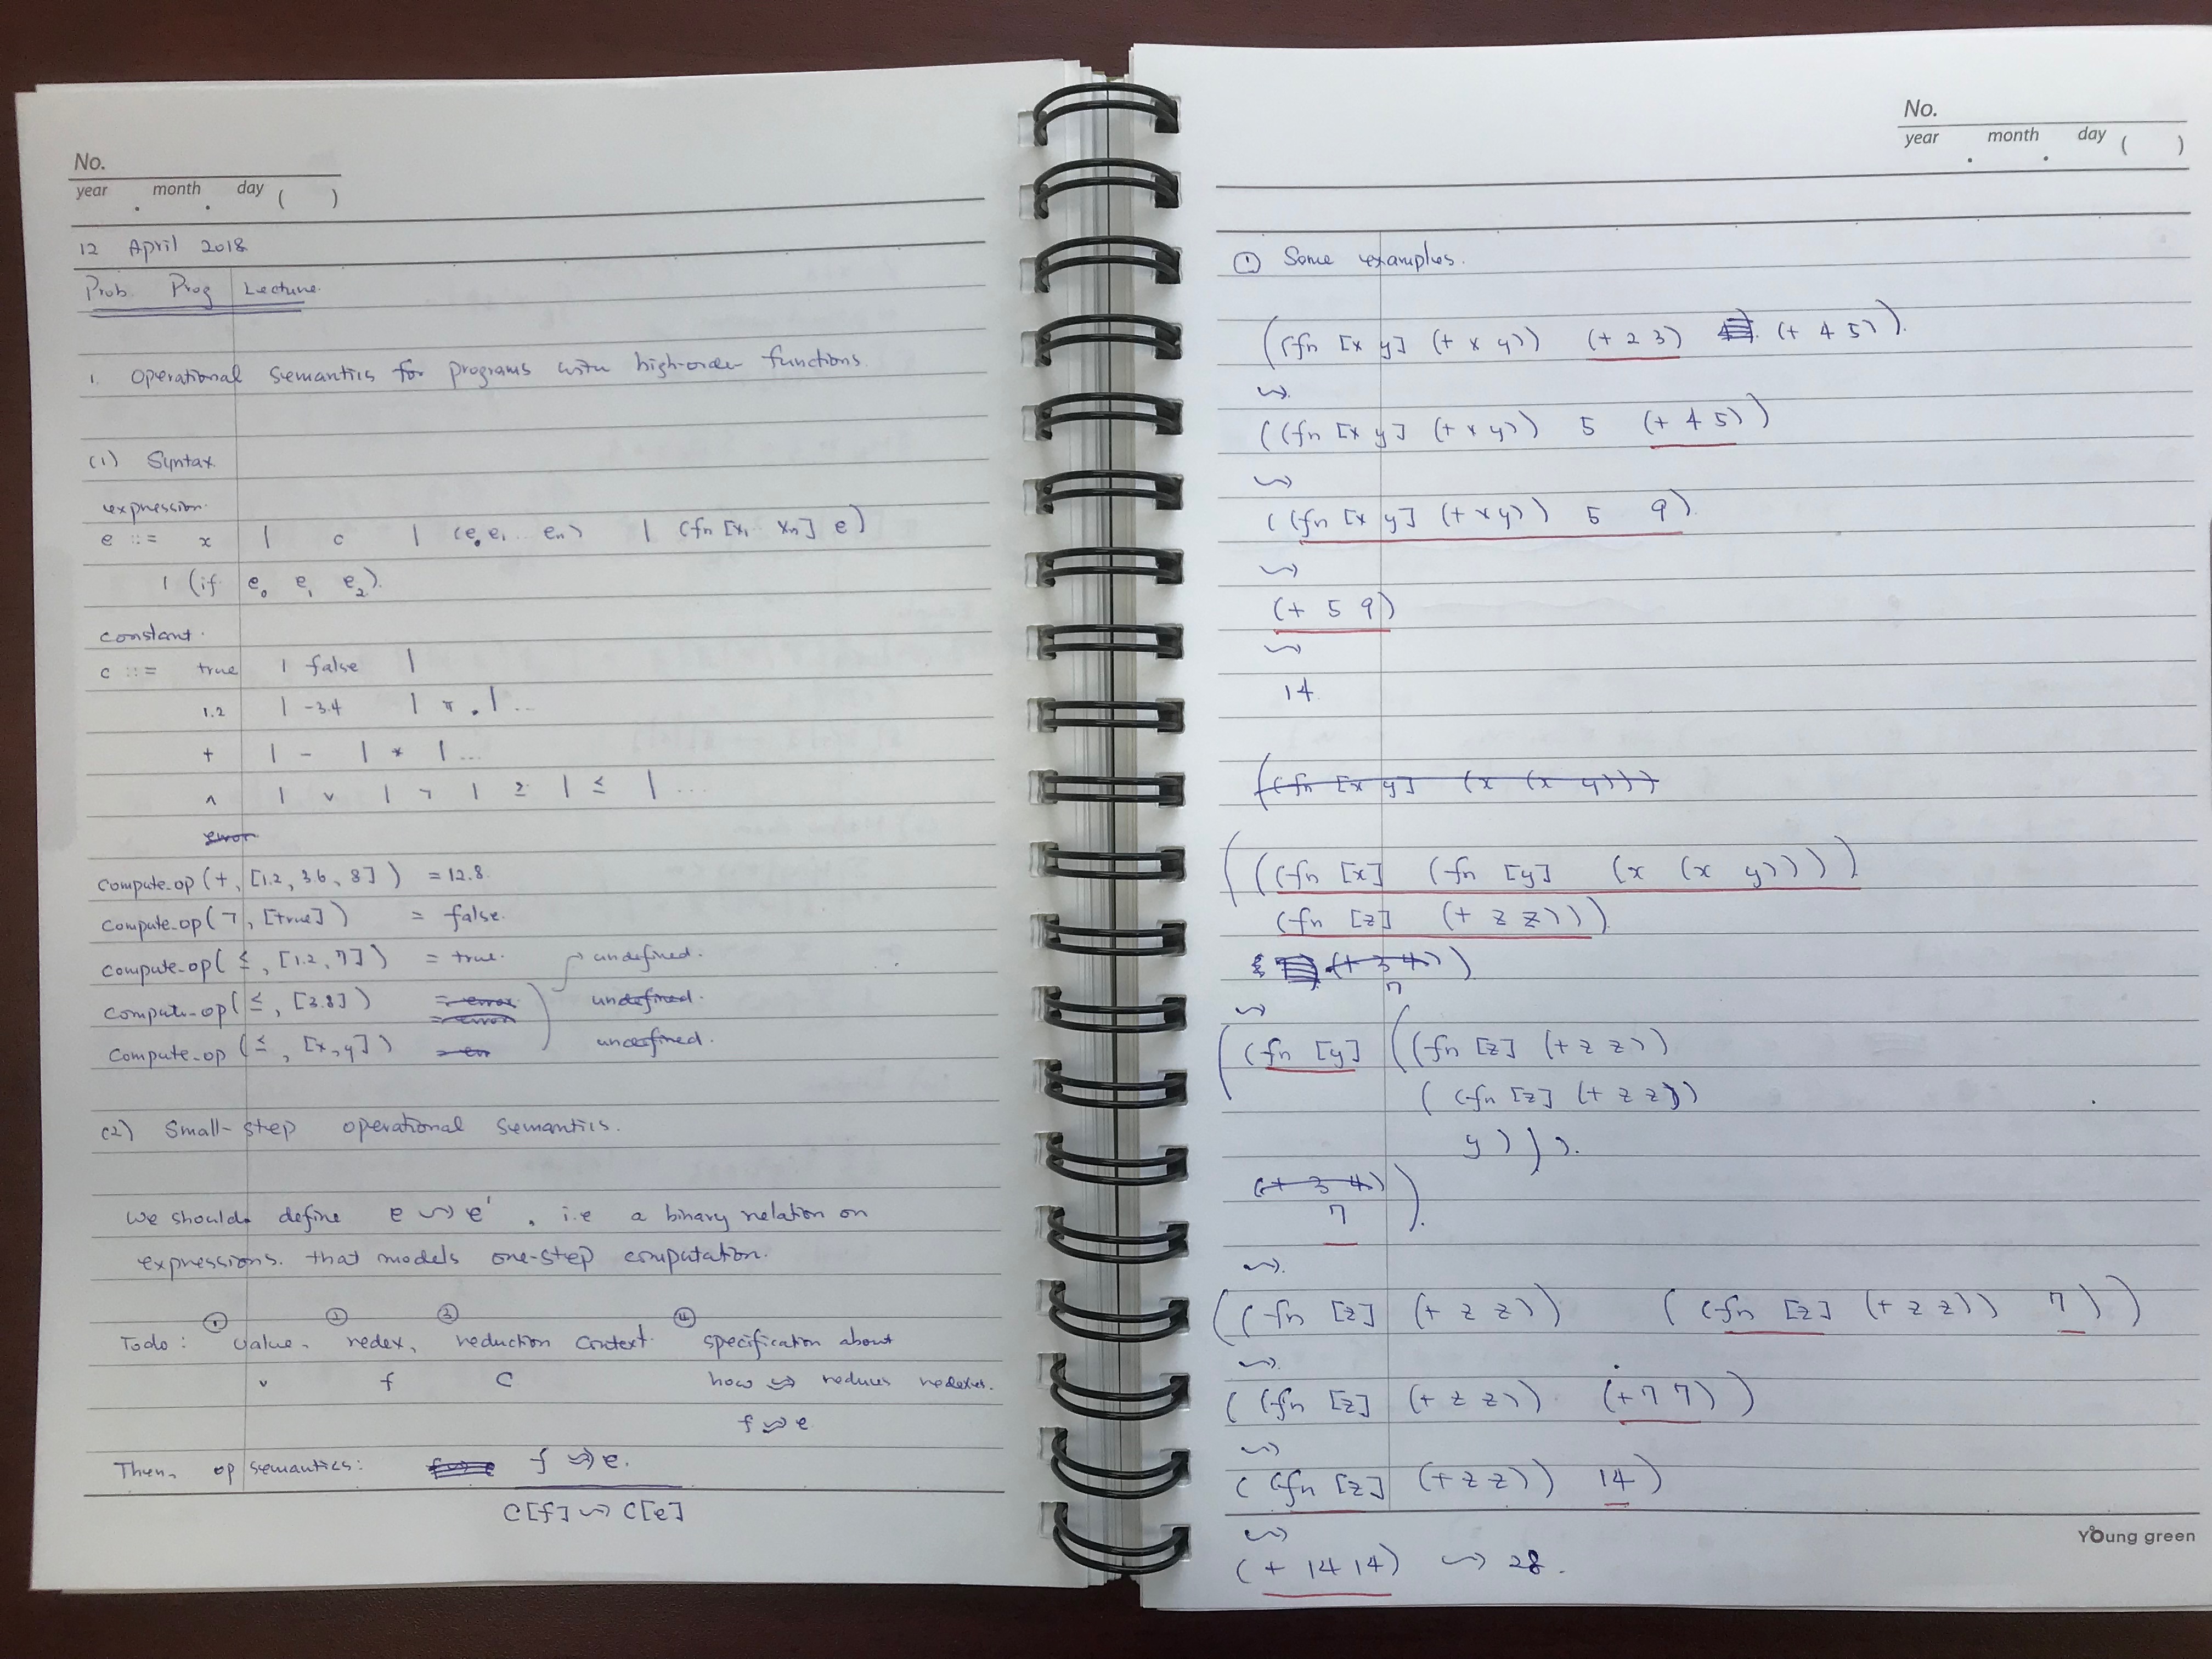 No.
year . month . day ( )
12 April 2018
Prob. Prog Lecture.
1. Operational semantics for programs with high-order functions.
(1) Syntax
expression.
e ::= x | c | (e₀ e₁ .. eₙ) | (fn [x₁ .. xₙ] e)
| (if e₀ e₁ e₂).
constant.
c ::= true | false |
1.2 | -3.4 | π . | ...
+ | - | * | ...
∧ | ∨ | ¬ | ≥ | ≤ | ...
error
compute_op (+, [1.2, 3.6, 8]) = 12.8.
compute_op (¬, [true]) = false.
compute_op (≤, [1.2, 7]) = true. undefined.
compute_op (≤, [3.8]) = error = error undefined.
compute_op (≤, [x, y]) = err undefined.
(2) Small-step operational semantics.
We should define e ⤳ e' , i.e a binary relation on
expressions. that models one-step computation.
Todo: ① value, ② redex, ③ reduction context ④ specification about
v f C how ⤳ reduces redexes.
f ⤳ e
Then, op semantics: f ⤳ e.
C[f] ⤳ C[e]
No.
year . month . day ( )
① Some examples.
((fn [x y] (+ x y)) (+ 2 3) (+ 4 5)).
⤳
((fn [x y] (+ x y)) 5 (+ 4 5))
⤳
((fn [x y] (+ x y)) 5 9)
⤳
(+ 5 9)
⤳
14
((fn [x y] (x (x y)))
(((fn [x] (fn [y] (x (x y))))
(fn [z] (+ z z)))
(+ 3 4))
7
⤳
((fn [y] ((fn [z] (+ z z))
((fn [z] (+ z z))
y))).
(+ 3 4))
7
⤳
((fn [z] (+ z z)) ((fn [z] (+ z z)) 7))
⤳
((fn [z] (+ z z)) (+ 7 7))
⤳
((fn [z] (+ z z)) 14)
⤳
(+ 14 14) ⤳ 28.
Young green